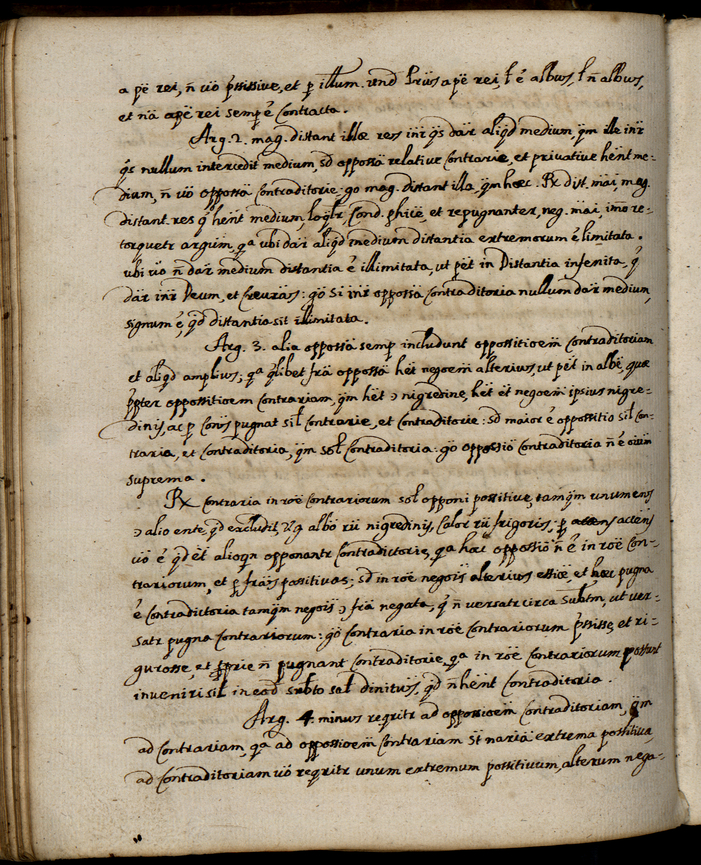 a pẽ rei, ñ uõ pssitive, et p illum. und Prius a pẽ rei, t ẽ albus, t ñ albus,
et nã apẽ rei semp ẽ Contracta.
Arg. 2. mag. distant illæ res inr qs dar aliqd medium, qm ille inr
qs nullum intercedit medium, sd oppossã relative Contrarie, et privative hent me-
dium, ñ uõ oppossã Contraditorie: go mag. distant illa, qm hæc. Rx dist. mai, mag.
distant. res q hent medium, loqlr, Cond. phicẽ, et repugnanter, neg. mai, imo re-
torquetr argum, qa ubi dar aliqd medium distantia extremorum ẽ limitata.
ubi uõ ñ dar medium distantia ẽ illimitata, ut pet in Distantia infenita, q
dar inr Deum, et Creuras: go si inr oppossã Contraditoria nullum dar medium,
signum ẽ, qd distantia sit illimitata.
Arg. 3. alia oppossã semp includunt oppossitioem Contraditoriam
et aliqd amplius; qa qlibet frã oppossã het negoem alterius, ut pet in albẽ, quæ
ppter oppossitioem Contrariam, qm het ɔ nigredine, het et negoem ipsius nigre-
dinis, ac p Cons pugnat sil Contrarie, et Contraditorie: sd maior ẽ oppossitio sil Con-
traria, et Contraditoria, qm sol Contraditoria: go oppossiõ Contraditoria ñ ẽ oium
suprema.
Rx Contraria in roẽ Contrariorum sol opponi possitive, tamqm unum ens
ɔ alio ente, qd excludit, V.g. albõ rũ nigredinis, Calor rũ frigoris; p accens
uõ ẽ qd et alioqn opponantr Contradictorie, qa hæc oppossiõ ñ ẽ in roẽ Con-
trariorum, et p frãs possitivas; sd in roẽ negois alterius essiæ, et hæc pugna
ẽ Contradictoria tamqm negois ɔ frã negata, q ñ versatr circa Subtm, ut ver-
satr pugna Contrariorum: go Contraria in roẽ Contrariorum pssisse, et ri-
gurosse, et pprie ñ pugnant Contraditorie, qa in roẽ Contrariorum possunt
inveniri sil in eod subto sal dinitus, qd ñ hent Contraditoria.
Arg. 4. minus reqritr ad oppossioem Contraditoriam, qm
ad Contrariam, qa ad oppossioem Contrariam st naria extrema possitiva,
ad Contraditoriam uõ reqritr unum extremum possitivum, alterum nega-